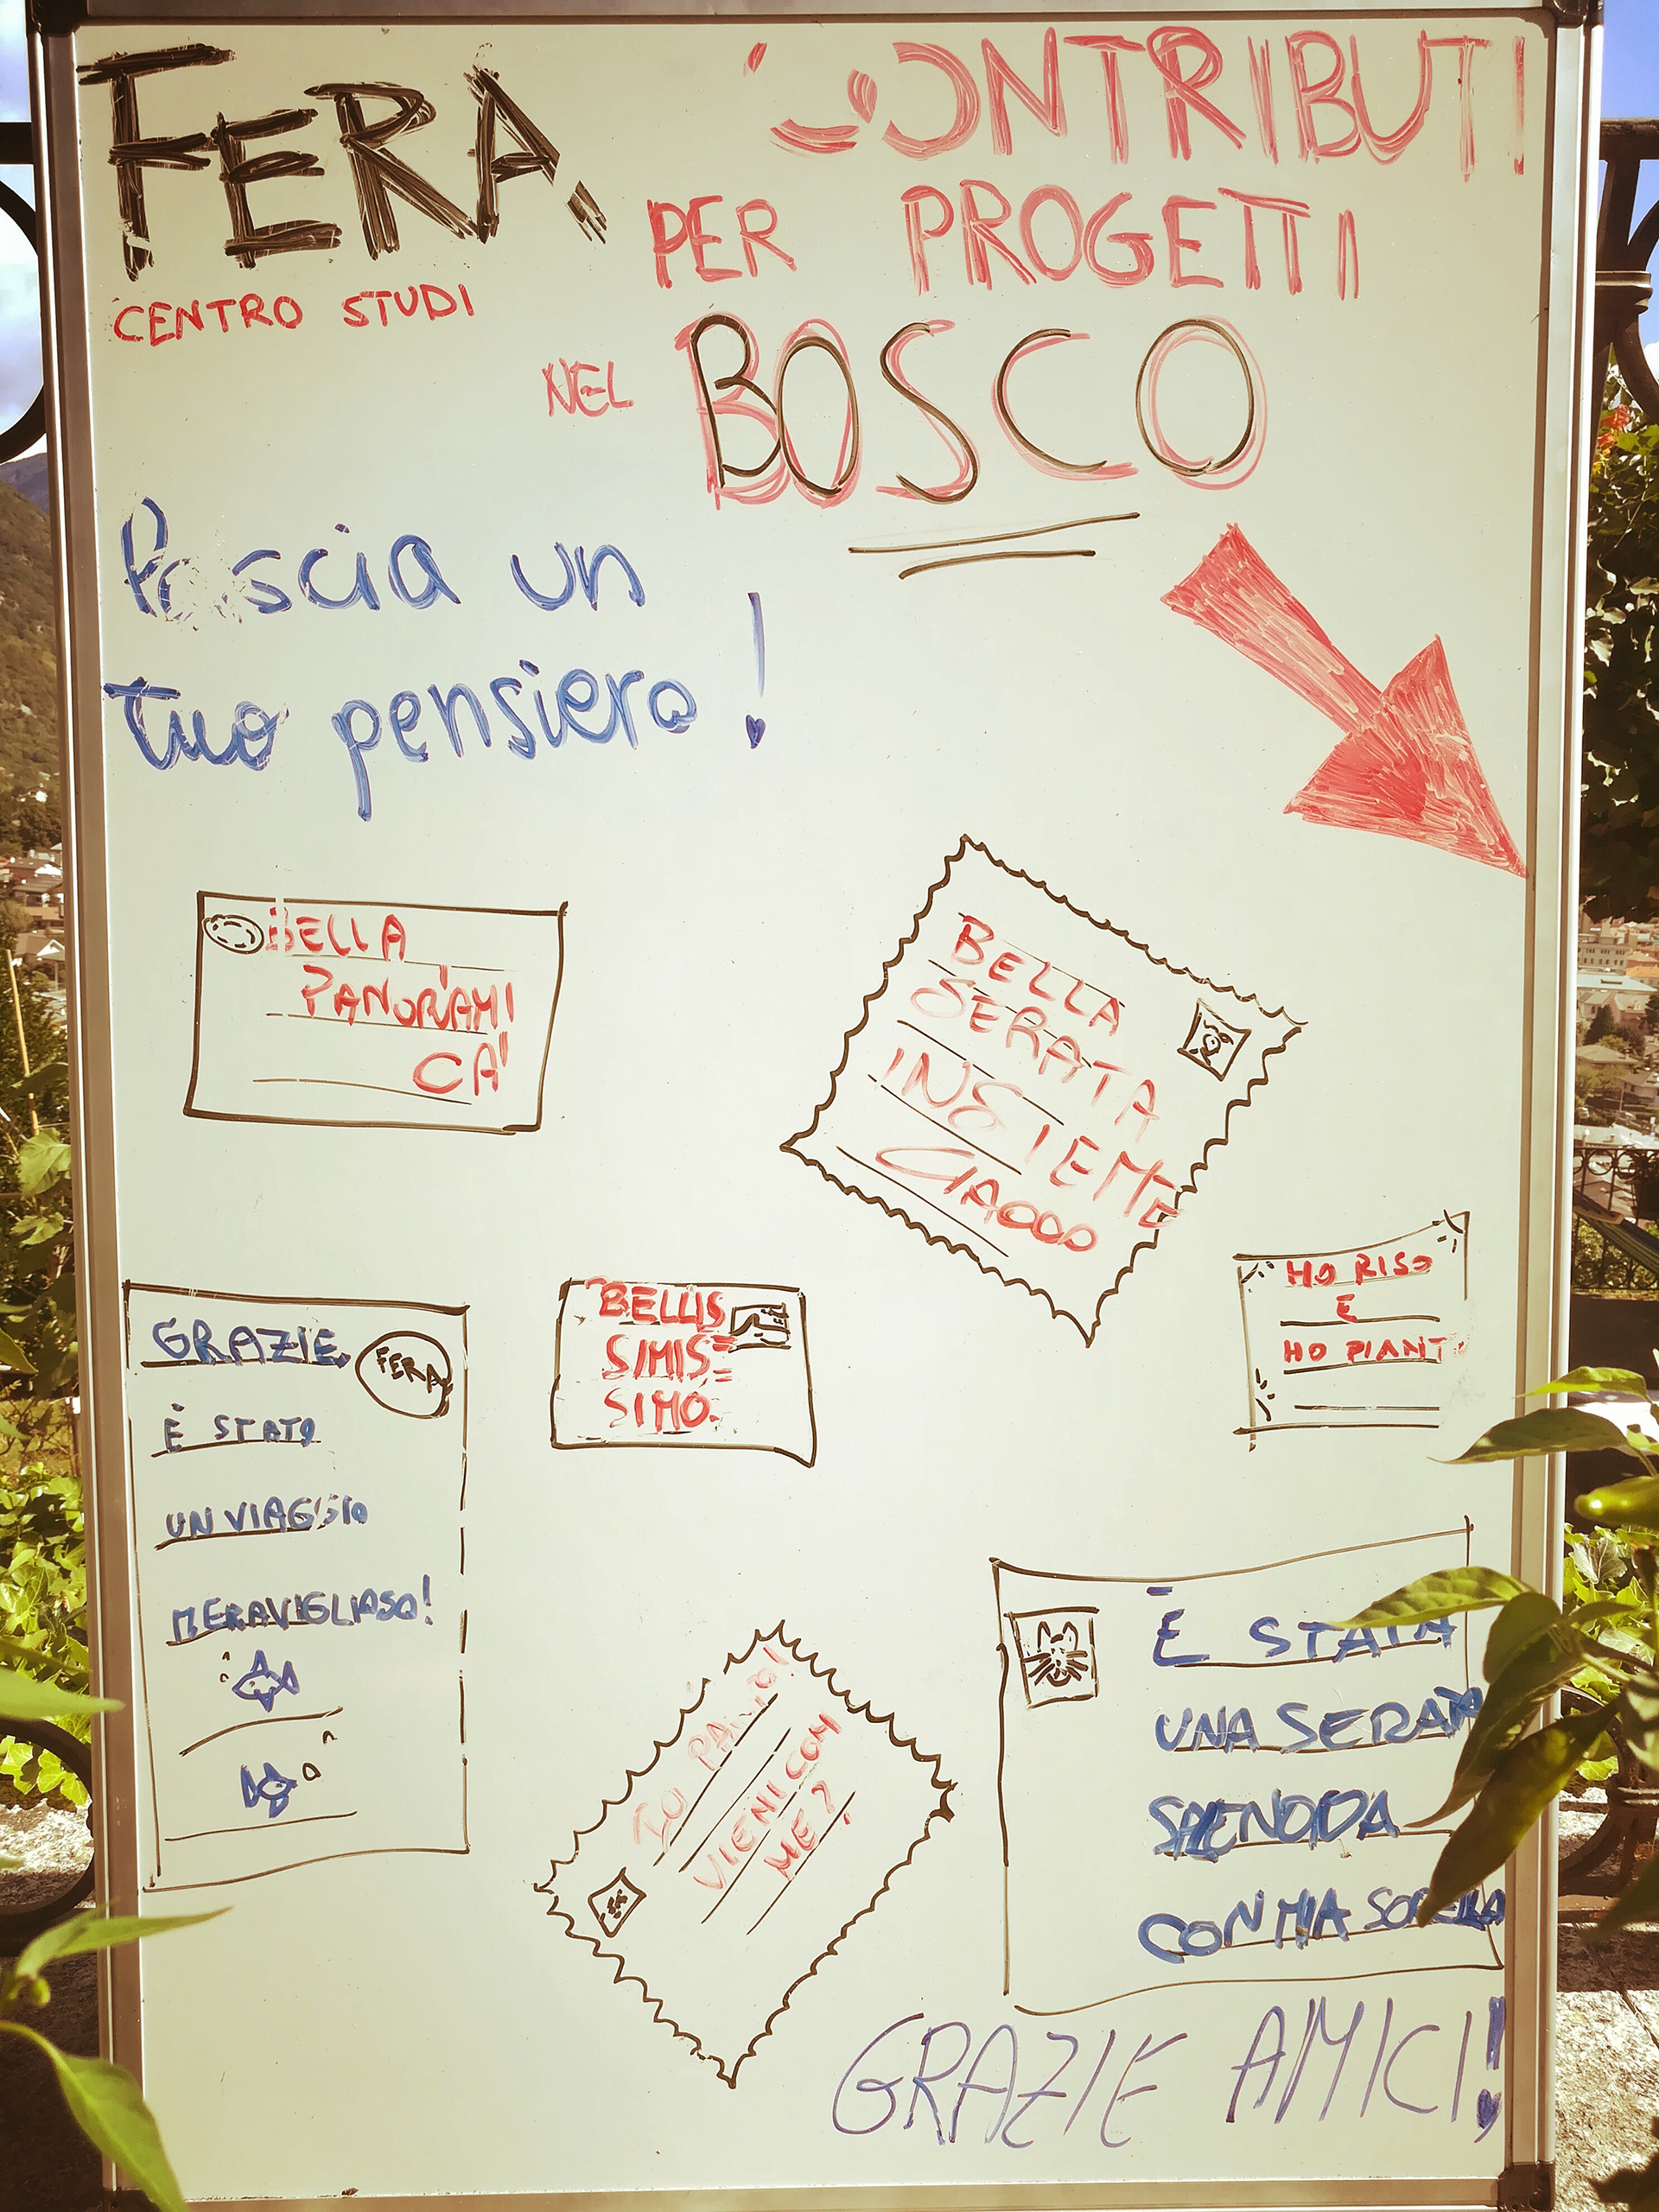 FERA,
CENTRO STUDI
CONTRIBUTI
PER PROGETTI
NEL BOSCO
un
tuo pensiero!
BELLA
PANORAMI
CA'
BELLA
SERATA
INSIEME
CIAOOO
HO RISO
E
HO PIANT
BELLIS
SIMIS=
SIMO.
GRAZIE.
FERA,
È STATO
UN VIAGGIO
MERAVIGLIOSO!
IO
VIENI CON
ME?
È STATA
UNA SERATA
SPLENDIDA
CON MIA SORELLA
GRAZIE AMICI!